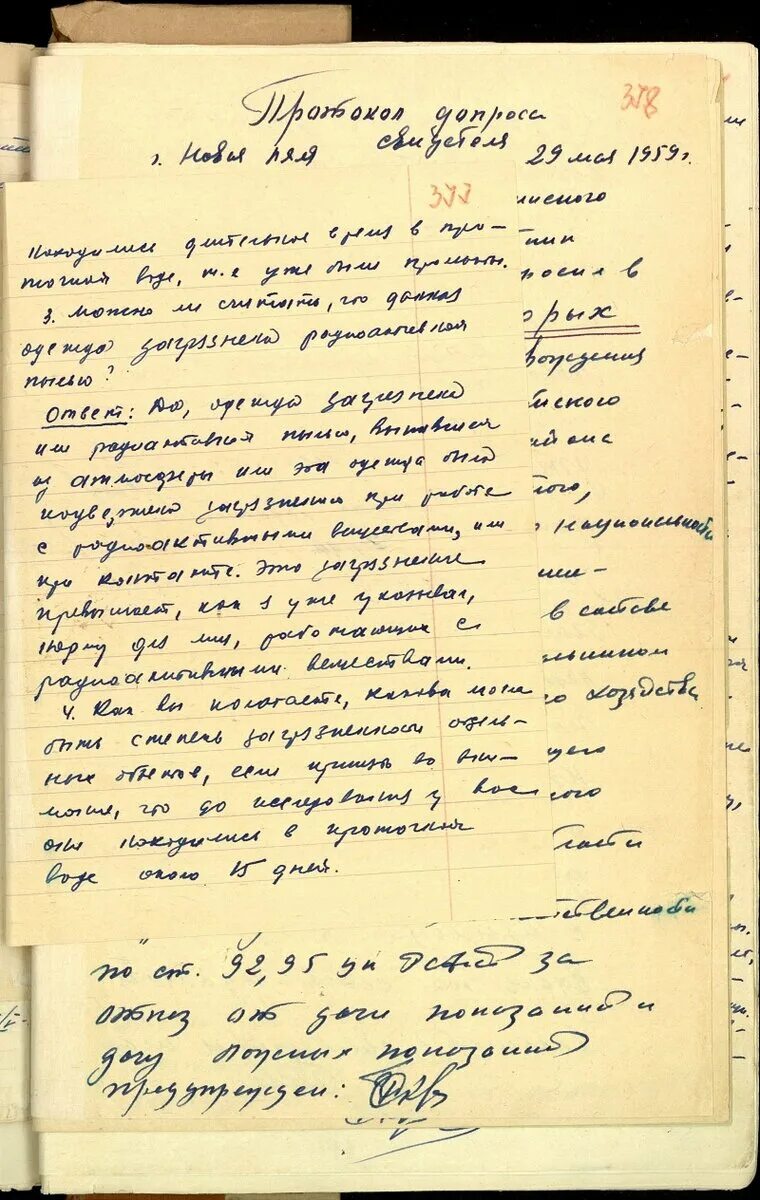 378
Протокол допроса
свидетеля
г. Новая Ляля
29 мая 1959 г.
377
находились длительное время в про-
точной воде, т.е уже были промыты.
3. Можно ли считать, что данная
одежда загрязнена радиоактивной
пылью?
Ответ: Да, одежда загрязнена
или радиоактивной пылью, выпавшей
из атмосферы или эта одежда была
подвержена загрязнению при работе
с радиоактивными веществами, или
при контакте. Это загрязнение
превышает, как я уже указывал,
норму для лиц, работающих с
радиоактивными веществами.
4. Как вы полагаете, какова могла
быть степень загрязненности отдель-
ных объектов, если принять во вни-
мание, что до исследования у вас
они находились в проточной
воде около 15 дней.
орых
рождения
йского
айона
того,
национальности
ние-
в составе
го хозяйства
щего
ного
ласти
тственности
по ст. 92, 95 ук РСФСР за
отказ от дачи показаний и
дачу ложных показаний
предупрежден: